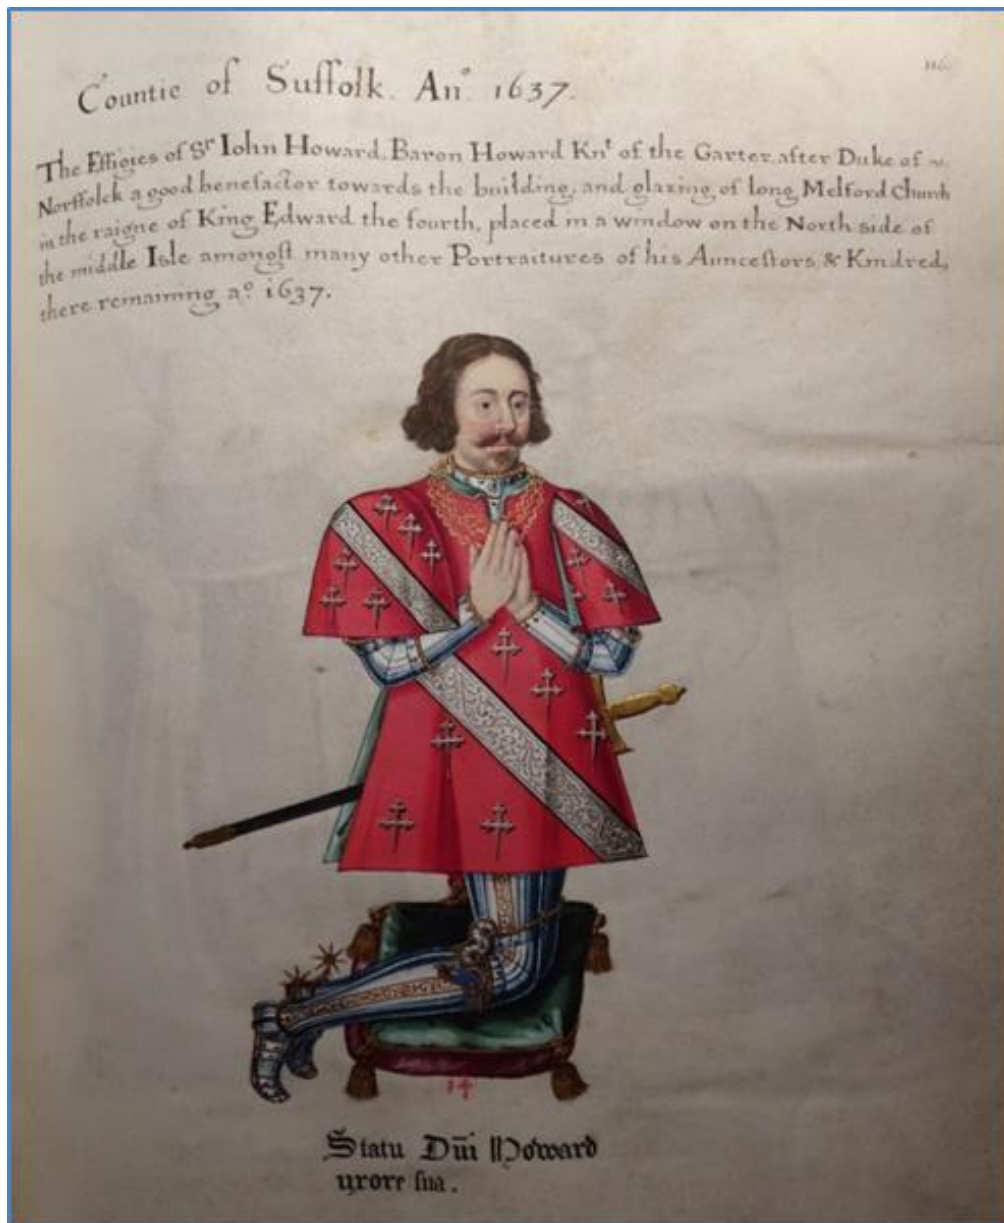 Countie of Suffolk. Anº. 1637.
The Effigies of Sr Iohn Howard, Baron Howard Knt of the Garter, after Duke of
Norffolck a good benefactor towards the building, and glazing of long Melford Church
in the raigne of King Edward the fourth, placed in a window on the North side of
the middle Isle amongst many other Portraitures of his Auncestors, & Kindred,
there remaining aº. 1637.
14
Statu Dni Howard
uxore sua.